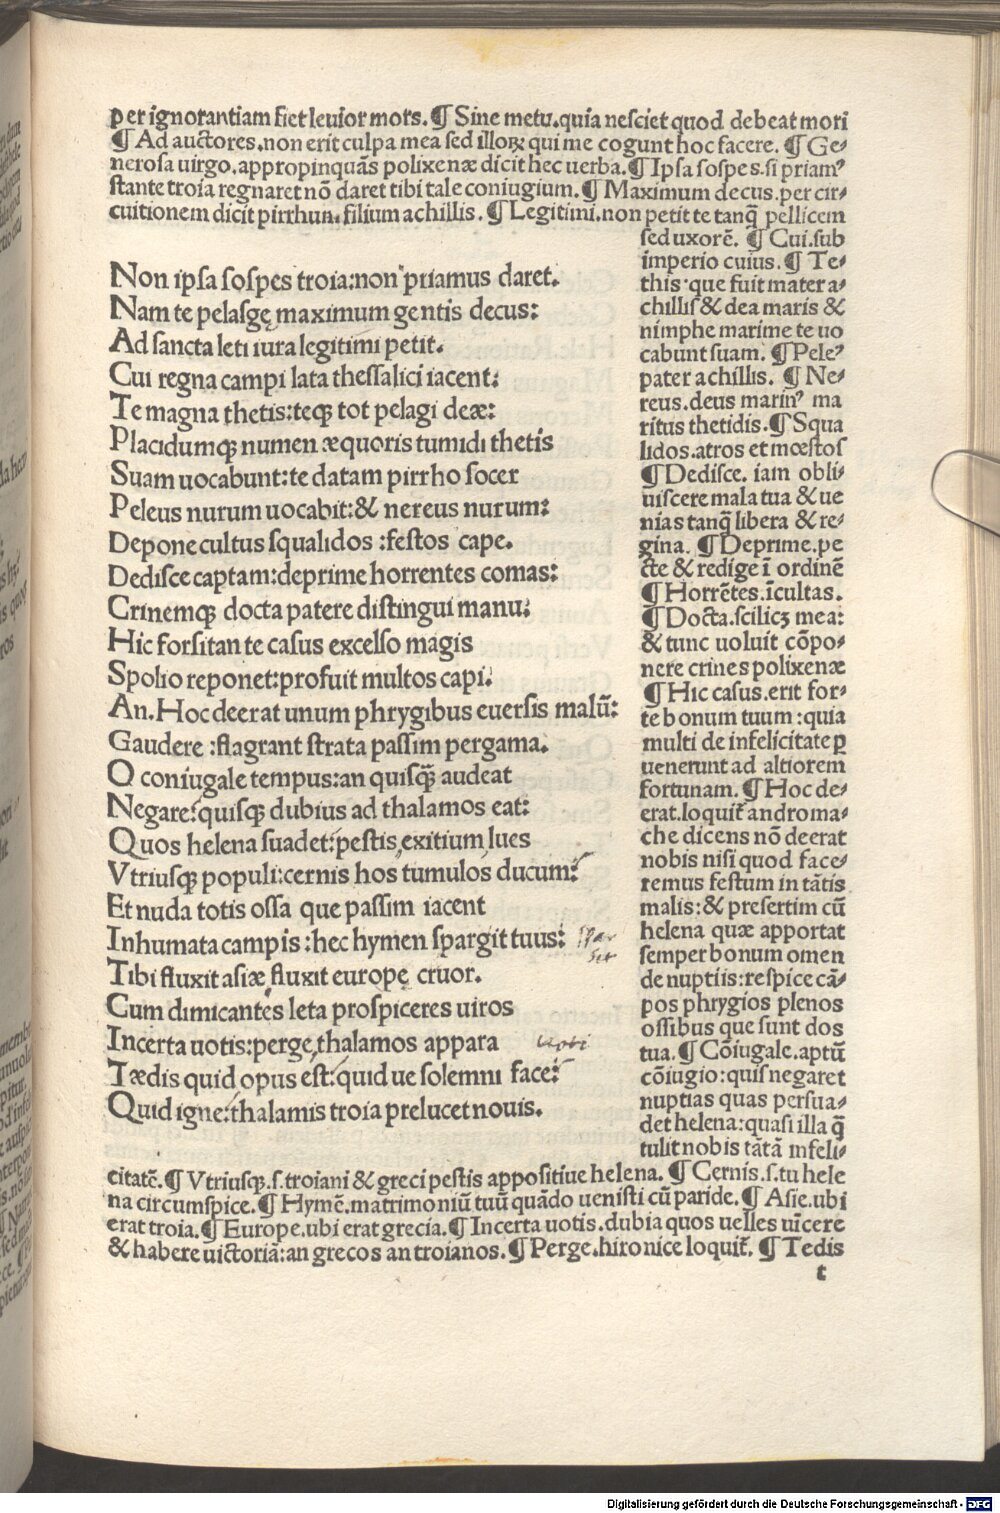 per ignorantiam fiet leuior mors. ¶ Sine metu. quia nesciet quod debeat mori
¶ Ad auctores. non erit culpa mea sed illoꝝ qui me cogunt hoc facere. ¶ Ge-
nerosa uirgo. appropinquãs polixenæ dicit hec uerba. ¶ Ipsa sospes. si priamꝰ
stante troia regnaret nõ daret tibi tale coniugium. ¶ Maximum decus. per cir-
cuitionem dicit pirrhum. filium achillis. ¶ Legitimi. non petit te tanq̃ pellicem
sed uxorẽ. ¶ Cui. sub
imperio cuius. ¶ Te-
this. que fuit mater a-
chillis & dea maris &
nimphe marime te uo
cabunt suam. ¶ Peleꝰ
pater achillis. ¶ Ne-
reus. deus marinꝰ ma
ritus thetidis. ¶ Squa
lidos. atros et mœstos
¶ Dedisce. iam obli-
uiscere mala tua & ue
nias tanq̃ libera & re-
gina. ¶ Deprime. pe
cte & redige ĩ ordinẽ
¶ Horrẽtes. ĩcultas.
¶ Docta. scilicꝫ mea:
& tunc uoluit cõpo-
nere crines polixenæ
¶ Hic casus. erit for-
te bonum tuum: quia
multi de infelicitate ꝑ
uenerunt ad altiorem
fortunam. ¶ Hoc de-
erat. loquit̃ androma-
che dicens nõ deerat
nobis nisi quod face-
remus festum in tãtis
malis: & presertim cũ
helena quæ apportat
semper bonum omen
de nuptiis: respice cã-
pos phrygios plenos
ossibus que sunt dos
tua. ¶ Cõiugale. aptũ
cõiugio: quis negaret
nuptias quas persua-
det helena: quasi illa q̃
tulit nobis tãtã infeli-
Non ipsa sospes troia: non priamus daret.
Nam te pelasgę maximum gentis decus:
Ad sancta leti iura legitimi petit.
Cui regna campi lata thessalici iacent:
Te magna thetis: teqꝫ tot pelagi deæ:
Placidumqꝫ numen æquoris tumidi thetis
Suam uocabunt: te datam pirrho socer
Peleus nurum uocabit: & nereus nurum:
Depone cultus squalidos: festos cape.
Dedisce captam: deprime horrentes comas:
Crinemqꝫ docta patere distingui manu:
Hic forsitan te casus excelso magis
Spolio reponet: profuit multos capi.
An. Hoc deerat unum phrygibus euersis malũ:
Gaudere: flagrant strata passim pergama.
O coniugale tempus: an quisq̃ audeat
Negare: quisqꝫ dubius ad thalamos eat:
Quos helena suadet: pestis, exitium, lues
Vtriusqꝫ populi: cernis hos tumulos ducum:
Et nuda totis ossa que passim iacent
Inhumata campis: hec hymen spargit tuus: spar
sit
Tibi fluxit asiæ, fluxit europę cruor.
Cum dimicantes leta prospiceres uiros
Incerta uotis: perge, thalamos appara uoti
Tædis quid opus est: quid ue solemni face:
Quid igne: thalamis troia prelucet nouis.
citatẽ. ¶ Vtriusqꝫ. s. troiani & greci pestis appositiue helena. ¶ Cernis. s. tu hele
na circumspice. ¶ Hymẽ. matrimoniũ tuũ quãdo uenisti cũ paride. ¶ Asie. ubi
erat troia. ¶ Europe. ubi erat grecia. ¶ Incerta uotis. dubia quos uelles uĩcere
& habere uictoriã: an grecos an troianos. ¶ Perge. hironice loquit̃. ¶ Tedis
t
Digitalisierung gefördert durch die Deutsche Forschungsgemeinschaft - DFG